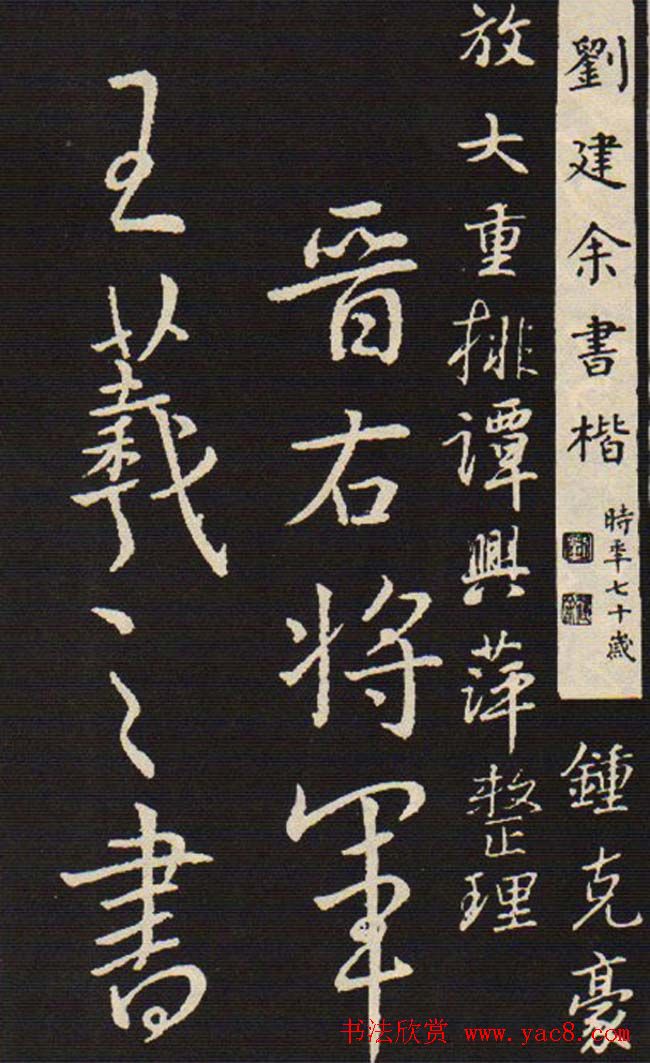 劉建余書楷
時年七十歲
鍾克豪
放大重排譚興萍整理
晋右将軍
王羲之書
书法欣赏 www.yac8.com